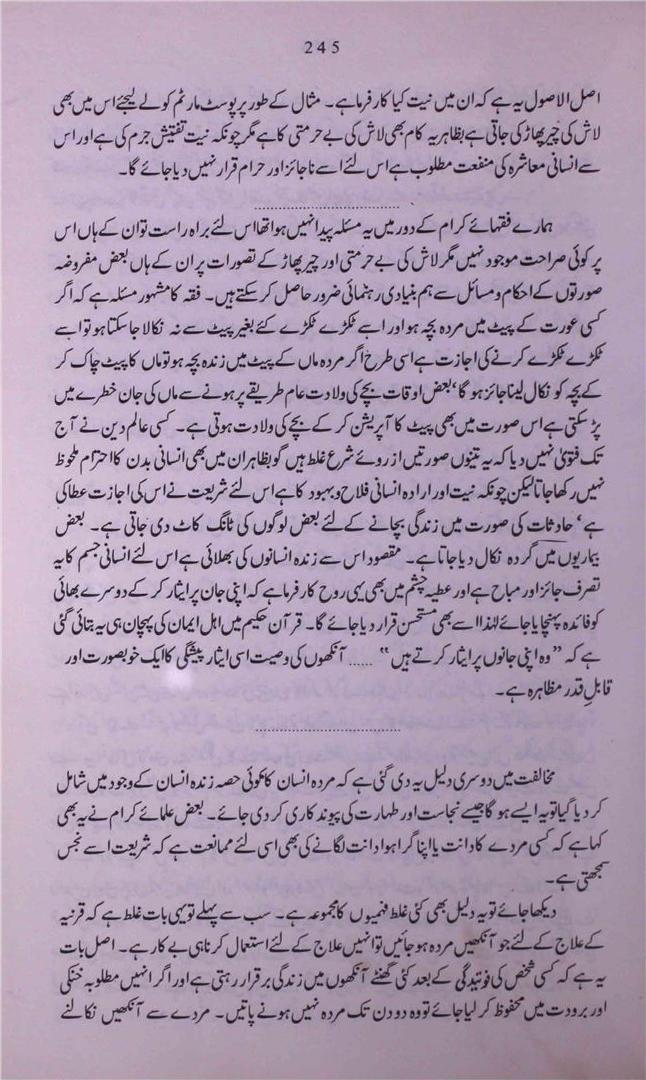 245
اصل الاصول یہ ہے کہ ان میں نیت کیا کارفرما ہے۔ مثال کے طور پر پوسٹ مارٹم کو لے لیجئے اس میں بھی
لاش کی چیر پھاڑ کی جاتی ہے بظاہر یہ کام بھی لاش کی بے حرمتی کا ہے مگر چونکہ نیت تفتیش جرم کی ہے اور اس
سے انسانی معاشرہ کی منفعت مطلوب ہے اس لئے اسے ناجائز اور حرام قرار نہیں دیا جائے گا۔
ہمارے فقہائے کرام کے دور میں یہ مسئلہ پیدا نہیں ہوا تھا اس لئے براہ راست تو ان کے ہاں اس
پر کوئی صراحت موجود نہیں مگر لاش کی بے حرمتی اور چیر پھاڑ کے تصورات پر ان کے ہاں بعض مفروضہ
صورتوں کے احکام و مسائل سے ہم بنیادی رہنمائی ضرور حاصل کر سکتے ہیں۔ فقہ کا مشہور مسئلہ ہے کہ اگر
کسی عورت کے پیٹ میں مردہ بچہ ہو اور اسے ٹکڑے ٹکڑے کئے بغیر پیٹ سے نہ نکالا جا سکتا ہو تو اسے
ٹکڑے ٹکڑے کرنے کی اجازت ہے اسی طرح اگر مردہ ماں کے پیٹ میں زندہ بچہ ہو تو ماں کا پیٹ چاک کر
کے بچہ کو نکال لینا جائز ہو گا، بعض اوقات بچے کی ولادت عام طریقے پر ہونے سے ماں کی جان خطرے میں
پڑ سکتی ہے اس صورت میں بھی پیٹ کا آپریشن کر کے بچے کی ولادت ہوتی ہے۔ کسی عالم دین نے آج
تک فتویٰ نہیں دیا کہ یہ تینوں صورتیں از روئے شرع غلط ہیں گو بظاہر ان میں بھی انسانی بدن کا احترام ملحوظ
نہیں رکھا جاتا لیکن چونکہ نیت اور ارادہ انسانی فلاح و بہبود کا ہے اس لئے شریعت نے اس کی اجازت عطا کی
ہے، حادثات کی صورت میں زندگی بچانے کے لئے بعض لوگوں کی ٹانگ کاٹ دی جاتی ہے۔ بعض
بیماریوں میں گردہ نکال دیا جاتا ہے۔ مقصود اس سے زندہ انسانوں کی بھلائی ہے اس لئے انسانی جسم کا یہ
تصرف جائز اور مباح ہے اور عطیہ چشم میں بھی یہی روح کارفرما ہے کہ اپنی جان پر ایثار کر کے دوسرے بھائی
کو فائدہ پہنچایا جائے لہٰذا اسے بھی مستحسن قرار دیا جائے گا۔ قرآن حکیم میں اہل ایمان کی پہچان ہی یہ بتائی گئی
ہے کہ ”وہ اپنی جانوں پر ایثار کرتے ہیں“ ...... آنکھوں کی وصیت اسی ایثار پیشگی کا ایک خوبصورت اور
قابلِ قدر مظاہرہ ہے۔
مخالفت میں دوسری دلیل یہ دی گئی ہے کہ مردہ انسان کا کوئی حصہ زندہ انسان کے وجود میں شامل
کر دیا گیا تو یہ ایسے ہو گا جیسے نجاست اور طہارت کی پیوند کاری کر دی جائے۔ بعض علمائے کرام نے یہ بھی
کہا ہے کہ کسی مردے کا دانت یا اپنا گرا ہوا دانت لگانے کی بھی اسی لئے ممانعت ہے کہ شریعت اسے نجس
سمجھتی ہے۔
دیکھا جائے تو یہ دلیل بھی کئی غلط فہمیوں کا مجموعہ ہے۔ سب سے پہلے تو یہی بات غلط ہے کہ قرنیہ
کے علاج کے لئے جو آنکھیں مردہ ہو جائیں تو انہیں علاج کے لئے استعمال کرنا ہی بے کار ہے۔ اصل بات
یہ ہے کہ کسی شخص کی فوتیدگی کے بعد کئی گھنٹے آنکھوں میں زندگی برقرار رہتی ہے اور اگر انہیں مطلوبہ خنکی
اور برودت میں محفوظ کر لیا جائے تو وہ دو دن تک مردہ نہیں ہونے پاتیں۔ مردے سے آنکھیں نکالنے